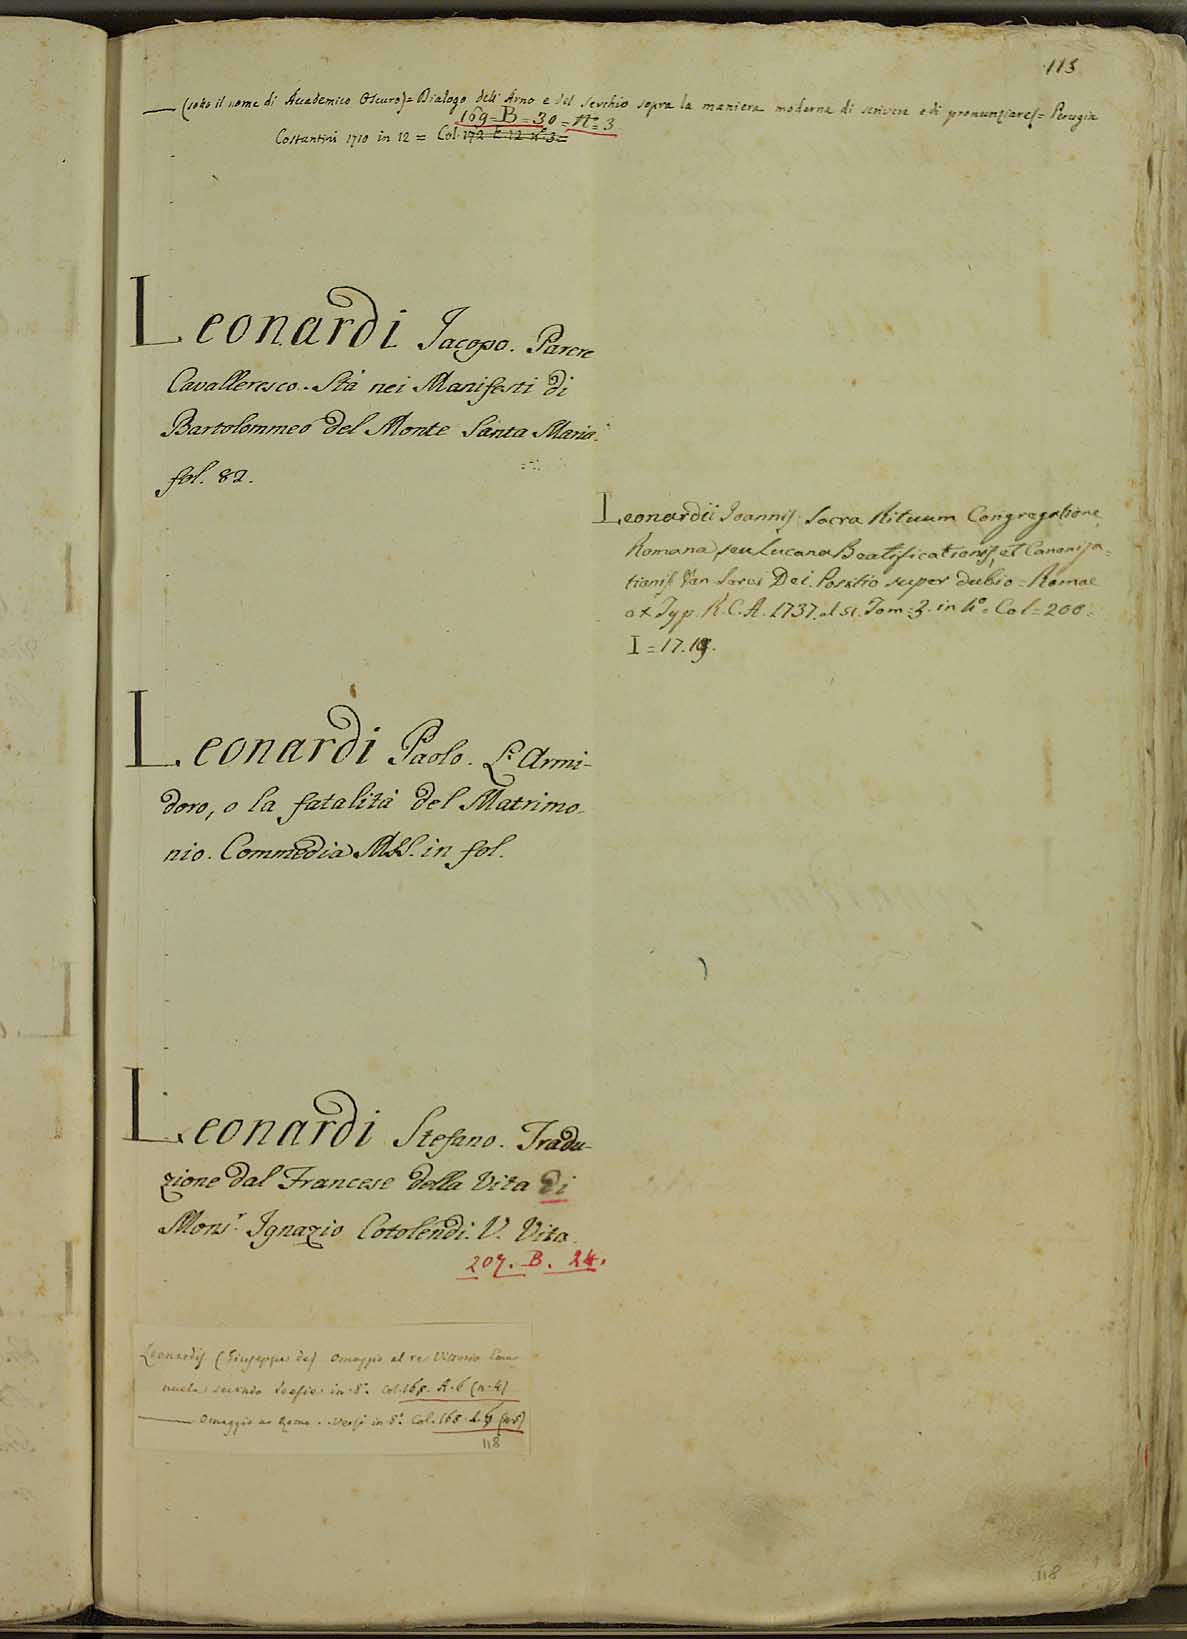 115
— (sotto il nome di Accademico Oscuro) = Dialogo dell' Arno e del Serchio sopra la maniera moderna di scrivere e di pronunziare = Perugia
169 = B = 30 = n.° 3
Costantini 1710 in 12 = Col. 172 E. 12 n.° 3 =
Leonardi Jacopo. Parere
Cavalleresco. Stà nei Manifesti di
Bartolommeo del Monte Santa Maria.
fol. 82.
Leonardii Joannis. Sacra Rituum Congregatione
Romana, seu Lucana Beatificationis, et Canoniza=
tionis Ven. Servi Dei. Positio super dubio = Romae
ex Typ. R. C. A. 1737. et st. Tom: 3. in 4° = Col = 200.
I = 17. 19.
Leonardi Paolo. L' Armi-
doro, o la fatalità del Matrimo-
nio. Commedia MSS. in fol.
Leonardi Stefano. Tradu-
zione dal Francese della Vita di
Mons.r Ignazio Cotolendi. V. Vita.
207. B. 24.
Leonardis (Giuseppe de) Omaggio al re Vittorio Ema
nuele secondo Poesie in 8.° Col. 168. A. 6 (n. 4)
— Omaggio a Roma. Versi in 8.° Col. 168. (n. 5)
118
118